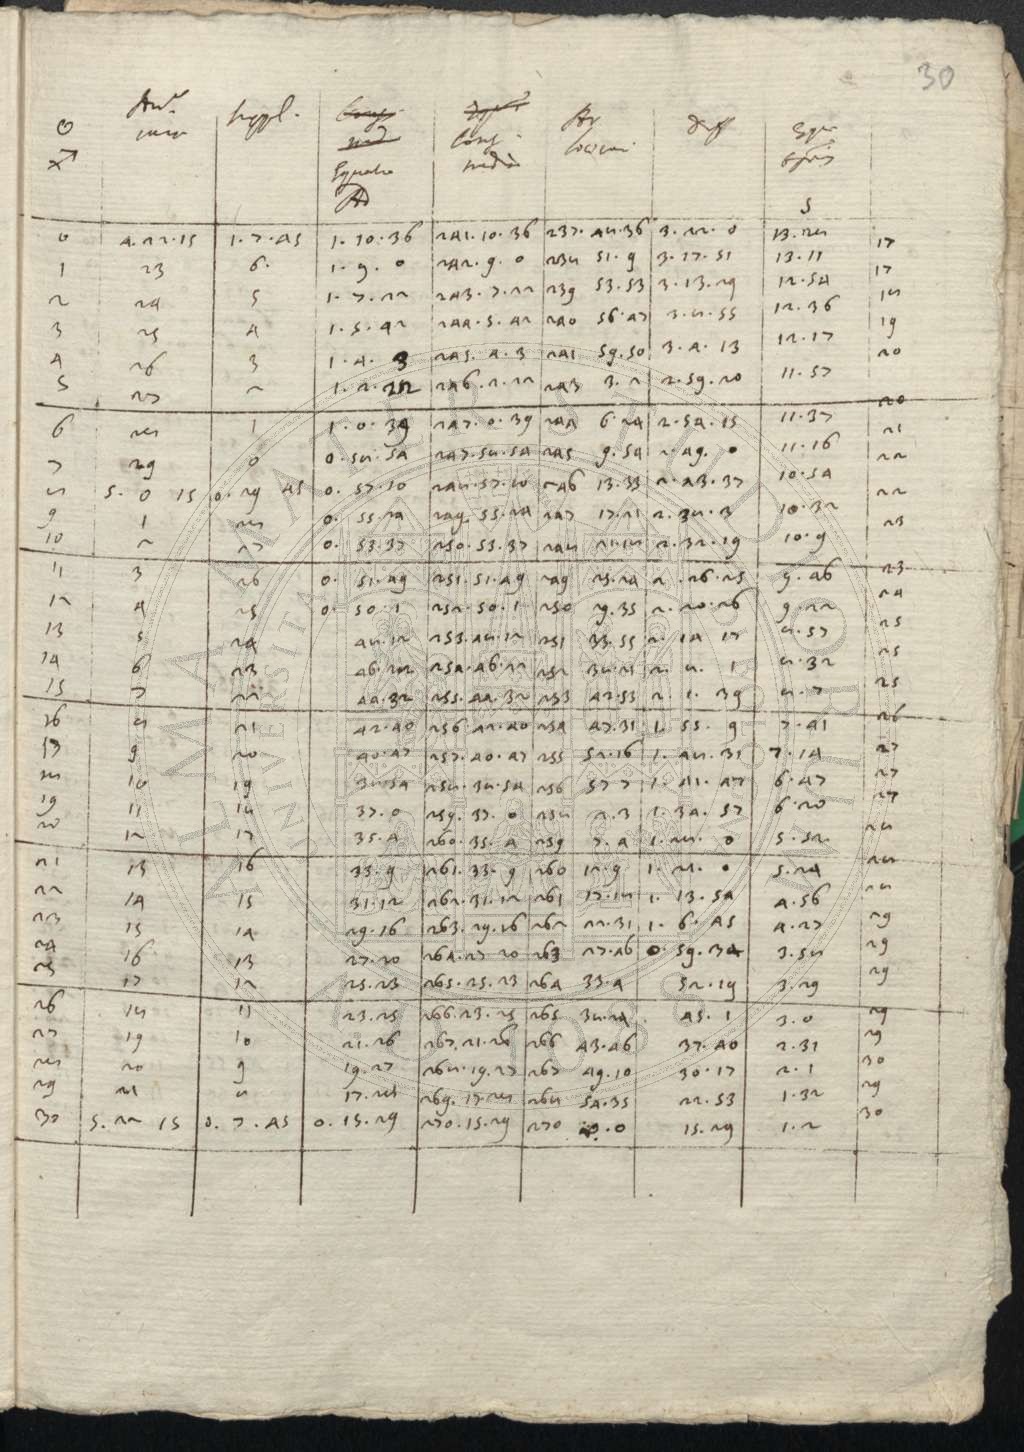 30
☉ Suppl. Conj. Diff
♐ med Conj.
Equatio media
S
0 4.22.15 1.7.45 1.10.36 241.10.36 237.48.36 3.22.0 13.28 17
1 23 6. 1.9.0 242.9.0 238 51.9 3.17.51 13.11 17
2 24 5 1.7.22 243.7.22 239 53.53 3.13.29 12.54 18
3 25 4 1.5.42 244.5.42 240 56.47 3.8.55 12.36 19
4 26 3 1.4.3 245.4.3 241 59.50 3.4.13 12.17 20
5 27 2 1.2.22 246.2.22 243 3.2 2.59.20 11.57 20
6 28 1 1.0.39 247.0.39 244 6.24 2.54.15 11.37 21
7 29 0 0.58.54 247.58.54 245 9.54 2.49.0 11.16 22
8 5.0 15 0.29 45 0.57.10 248.57.10 246 13.33 2.43.37 10.54 22
9 1 28 0.55.24 249.55.24 247 17.21 2.38.3 10.32 23
10 2 27 0.53.37 250.53.37 248 21.18 2.32.19 10.9 23
11 3 26 0.51.49 251.51.49 249 25.24 2.26.25 9.46 24
12 4 25 0.50.1 252.50.1 250 29.35 2.20.26 9.22 25
13 5 24 48.12 253.48.12 251 33.55 2.14 17 8.57 25
14 6 23 46.22 254.46.22 252 38.21 2.8.1 8.32 25
15 7 22 44.32 255.44.32 253 42.53 2.1.39 8.7 26
16 8 21 42.40 256.42.40 254 47.31 1.55.9 7.41 27
17 9 20 40.47 257.40.47 255 52.16 1.48.31 7.14 27
18 10 19 38.54 258.38.54 256 57 7 1.41.47 6.47 27
19 11 18 37.0 259.37.0 258 2.3 1.34.57 6.20 28
20 12 17 35.4 260.35.4 259 7.4 1.28.0 5.52 28
21 13 16 33.9 261.33.9 260 12.9 1.21.0 5.24 28
22 14 15 31.12 262.31.12 261 17.18 1.13.54 4.56 29
23 15 14 29.16 263.29.16 262 22.31 1.6.45 4.27 29
24 16 13 27.20 264.27 20 263 27.46 0.59.34 3.58 29
25 17 12 25.23 265.25.23 264 33.4 52.19 3.29 29
26 18 11 23.25 266.23.25 265 38.24 45.1 3.0 29
27 19 10 21.26 267.21.26 266 43.46 37.40 2.31 30
28 20 9 19.27 268.19.27 267 49.10 30.17 2.1 29
29 21 8 17.28 269.17.28 268 54.35 22.53 1.32 30
30 5.22 15 0.7.45 0.15.29 270.15.29 270 0.0 15.29 1.2